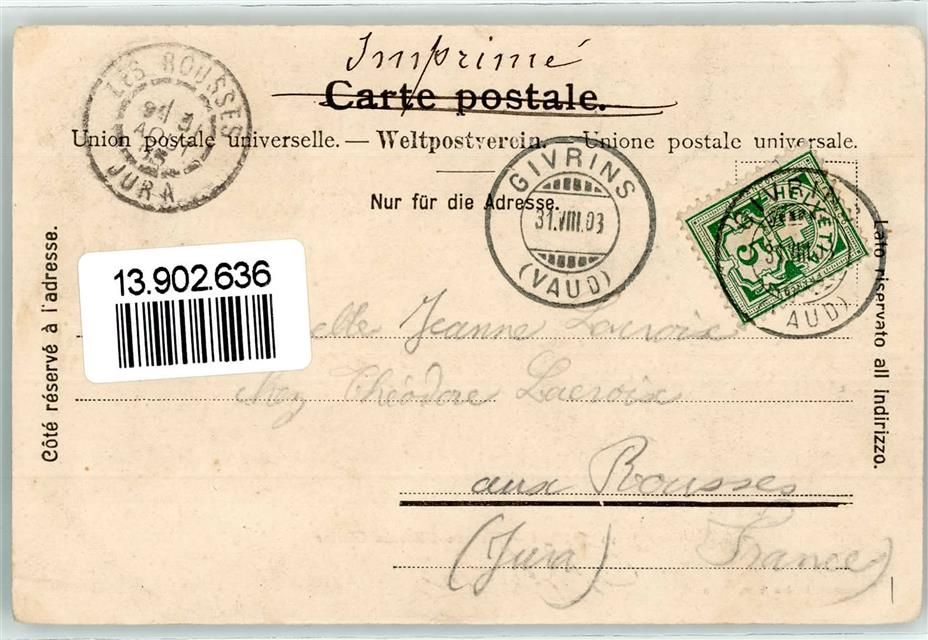 Imprimé
Carte postale.
Union postale universelle. — Weltpostverein. — Unione postale universale.
Nur für die Adresse.
Côté réservé à l'adresse.
Lato riservato all indirizzo.
LES ROUSSES
31
AOUT
03
JURA
GIVRINS
31.VIII.03
(VAUD)
HELVETIA
5
VIII
AUD)
13.902.636
elle Jeanne Lacroix
chez Théodore Lacroix
aux Rousses
(Jura) France)